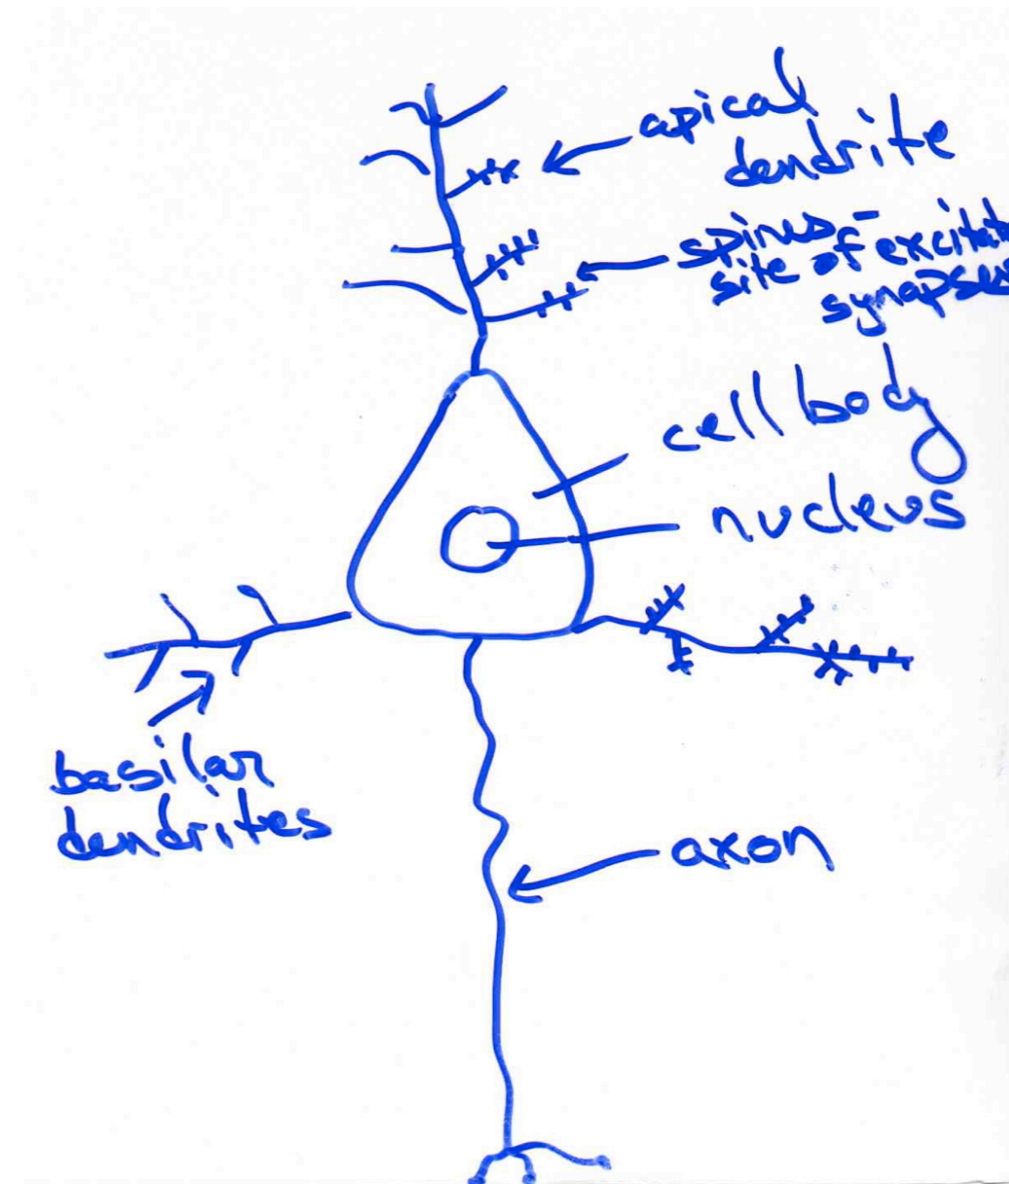 apical
dendrite
spines-
site of excitat
synapses
cell body
nucleus
basilar
dendrites
axon